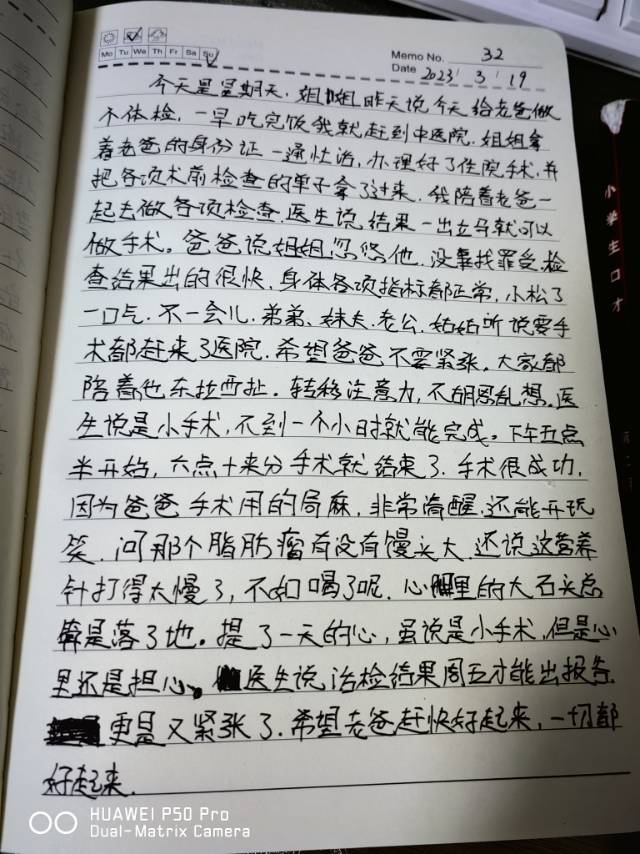 Mo Tu We Th Fr Sa Su
Memo No. 32
Date 2023 / 3 / 19
今天是星期天，姐姐昨天说今天给老爸做
个体检，一早吃完饭我就赶到中医院，姐姐拿
着老爸的身份证一通忙活，办理好了住院手术，并
把各项术前检查的单子拿了过来，我陪着老爸一
起去做各项检查，医生说结果一出立马就可以
做手术。爸爸说姐姐忽悠他，没事找罪受，检
查结果出的很快，身体各项指标都正常，小松了
一口气，不一会儿，弟弟、妹夫、老公、姑姑听说要手
术都赶来了医院，希望爸爸不要紧张，大家都
陪着他东拉西扯，转移注意力，不胡思乱想，医
生说是小手术，不到一个小时就能完成。下午五点
半开始，六点十来分手术就结束了，手术很成功，
因为爸爸手术用的局麻，非常清醒，还能开玩
笑，问那个脂肪瘤有没有馒头大，还说这营养
针打得太慢了，不如喝了呢，心里的大石头总
算是落了地。提了一天的心，虽说是小手术，但是心
里还是担心、医生说活检结果周五才能出报告，
更是又紧张了，希望老爸赶快好起来，一切都
好起来．
小学生口才
HUAWEI P50 Pro
Dual-Matrix Camera